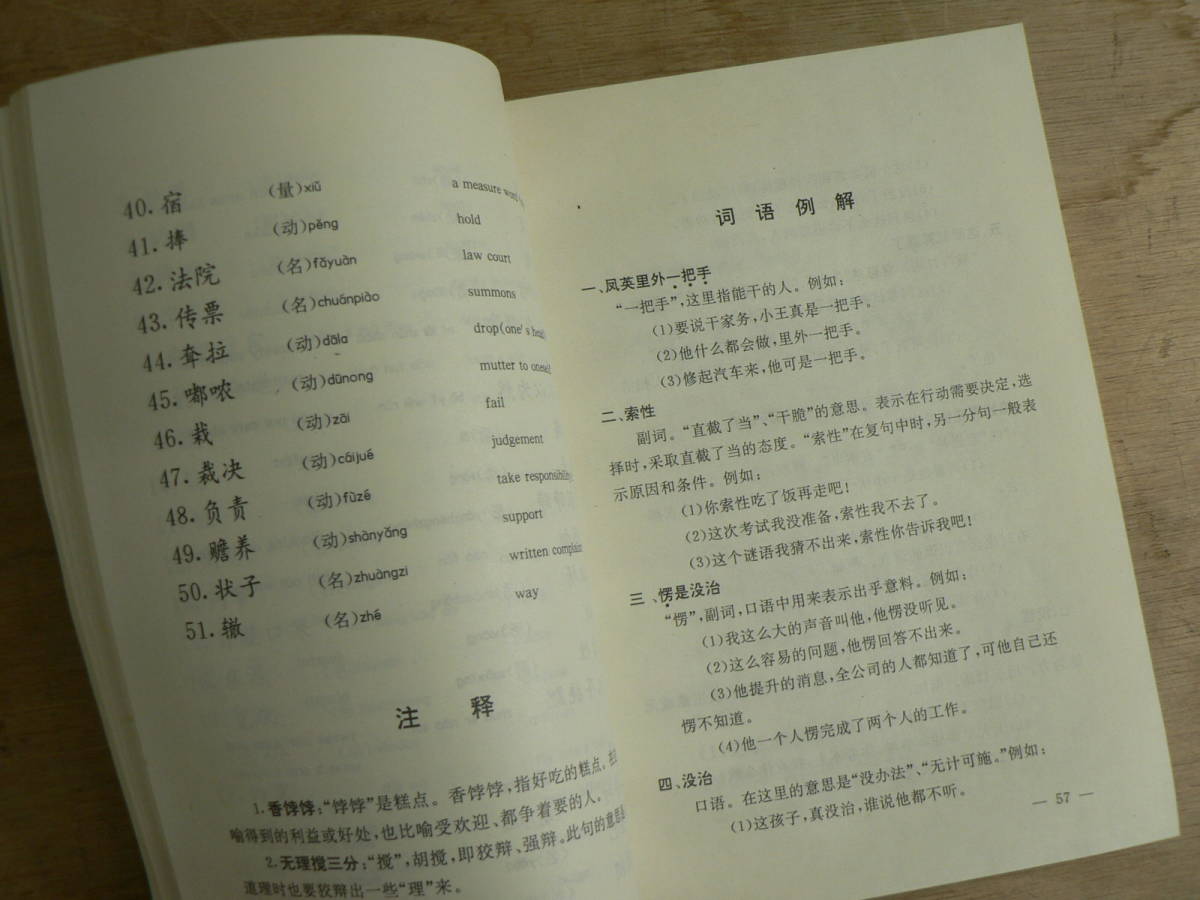 40. 宿 （量）xiǔ a measure word
41. 捧 （动）pěng hold
42. 法院 （名）fǎyuàn law court
43. 传票 （名）chuánpiào summons
44. 耷拉 （动）dāla drop(one's head
45. 嘟哝 （动）dūnong mutter to oneself
46. 栽 （动）zāi fail
47. 裁决 （动）cáijué judgement
48. 负责 （动）fùzé take responsibility
49. 赡养 （动）shànyǎng support
50. 状子 （名）zhuàngzi written complain
51. 辙 （名）zhé way
注 释
1. 香饽饽：“饽饽”是糕点。香饽饽，指好吃的糕点。
喻得到的利益或好处，也比喻受欢迎、都争着要的人。
2. 无理搅三分：“搅”，胡搅，即狡辩、强辩。此句的意思
道理时也要狡辩出一些“理”来。
词语例解
一、凤英里外一把手
“一把手”，这里指能干的人。例如：
(1)要说干家务，小王真是一把手。
(2)他什么都会做，里外一把手。
(3)修起汽车来，他可是一把手。
二、索性
副词。“直截了当”、“干脆”的意思。表示在行动需要决定，选
择时，采取直截了当的态度。“索性”在复句中时，另一分句一般表
示原因和条件。例如：
(1)你索性吃了饭再走吧！
(2)这次考试我没准备，索性我不去了。
(3)这个谜语我猜不出来，索性你告诉我吧！
三、愣是没治
“愣”，副词，口语中用来表示出乎意料。例如：
(1)我这么大的声音叫他，他愣没听见。
(2)这么容易的问题，他愣回答不出来。
(3)他提升的消息，全公司的人都知道了，可他自己还
愣不知道。
(4)他一个人愣完成了两个人的工作。
四、没治
口语。在这里的意思是“没办法”、“无计可施。”例如：
(1)这孩子，真没治，谁说他都不听。
— 57 —